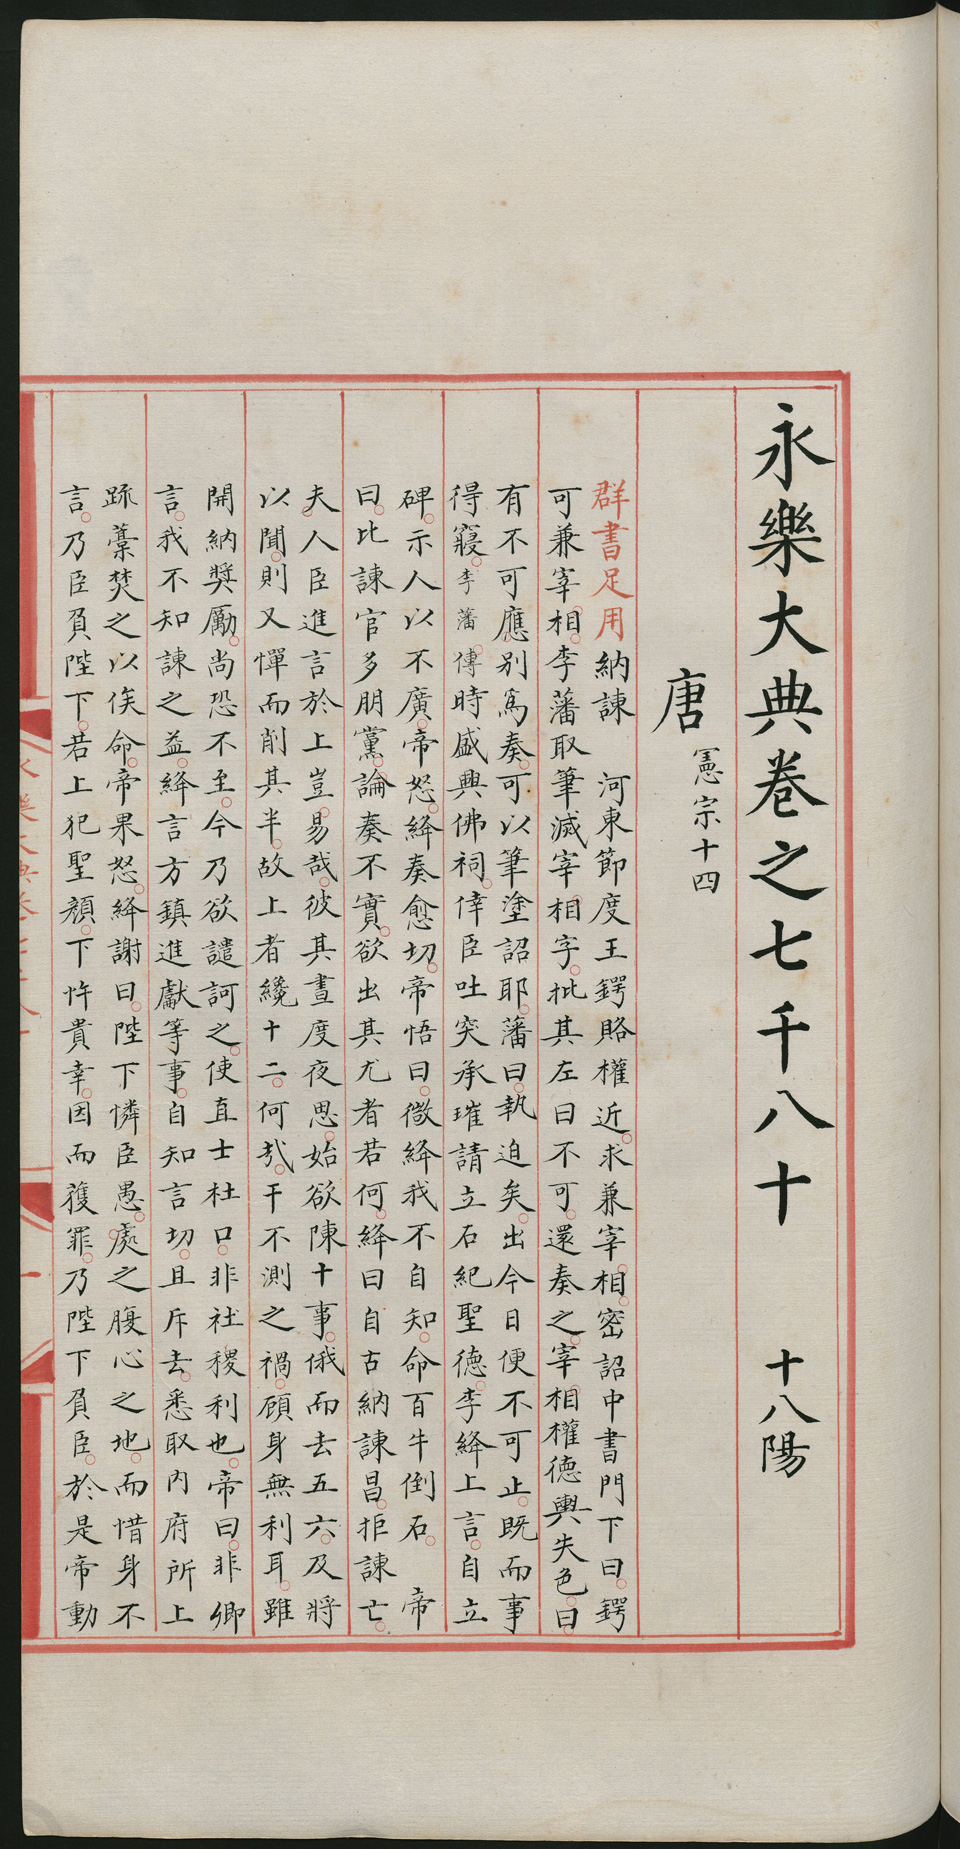 永樂大典卷之七千八十　十八陽
唐　憲宗十四
群書足用納諫　河東節度王鍔賂權近求兼宰相密詔中書門下曰鍔
可兼宰相李藩取筆滅宰相字批其左曰不可還奏之宰相權德輿失色曰
有不可應别爲奏可以筆塗詔耶藩曰埶迫矣出今日便不可止既而事
得寢李藩傳時盛興佛祠倖臣吐突承璀請立石紀聖德李絳上言自立
碑示人以不廣帝怒絳奏愈切帝悟曰微絳我不自知命百牛倒石　帝
曰比諫官多朋黨論奏不實欲出其尤者若何絳曰自古納諫昌拒諫亡
夫人臣進言於上豈易哉彼其晝度夜思始欲陳十事俄而去五六及將
以聞則又憚而削其半故上者纔十二何㢤干不測之禍顧身無利耳雖
開納奬厲尚恐不至今乃欲譴訶之使直士杜口非社稷利也帝曰非卿
言我不知諫之益絳言方鎮進獻等事自知言切且斥去悉取内府所上
䟽藁焚之以俟命帝果怒絳謝曰陛下憐臣愚處之腹心之地而惜身不
言乃臣負陛下若上犯聖顔下忤貴幸因而獲罪乃陛下負臣於是帝動